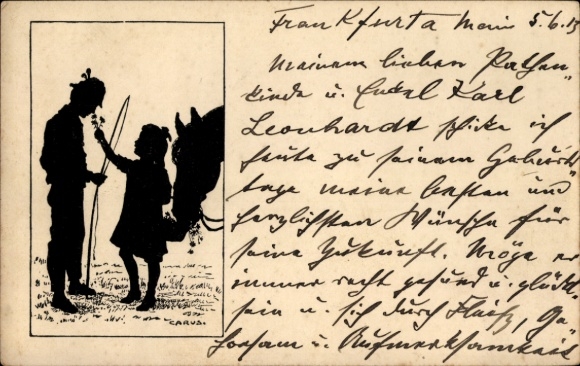 Frankfurta Main 5.6.13
Meinem lieben Pathen"
kinde u. Enkel Karl
Leonhardt schike ich
heute zu seinem Geburts"
tage meine besten und
herzlichsten Wünsche für
seine Zukunft. Möge er
immer recht gesund u. glückl.
sein u. sich durch Fleiß, Ge"
horsam u. Aufmerksamkeit
CARUS.